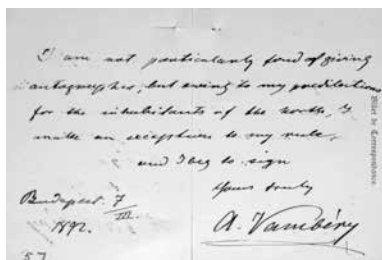 I am not particularly fond of giving
autographes, but owing to my predilections
for the inhabitants of the north, I
make an exception to my rule,
and I beg to sign
Yours truly
Budapest 7
III.
1892.
A. Vambéry
Billet de Correspondance.
57